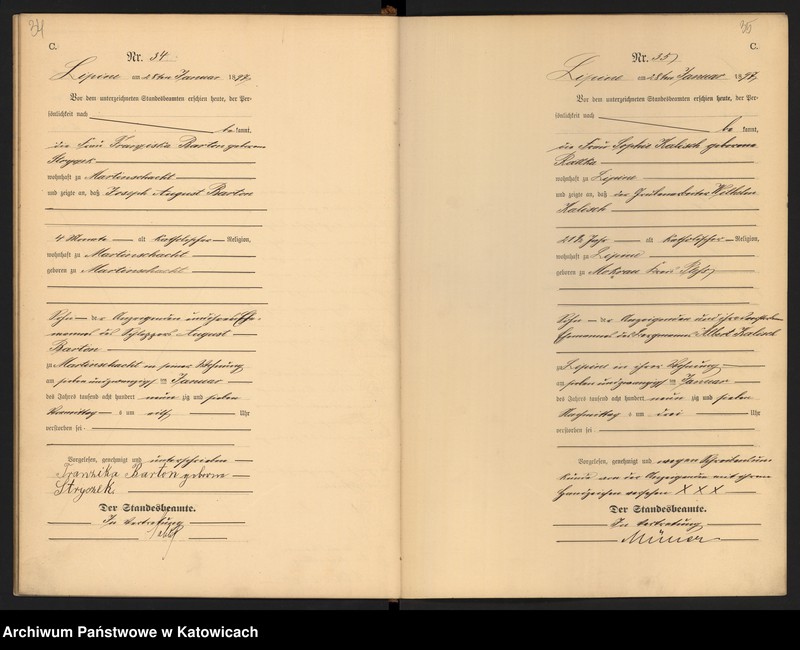 34
C.
Nr. 34.
Lipine am 28ten Januar 1897.
Vor dem unterzeichneten Standesbeamten erschien heute, der Per-
sönlichkeit nach
be kannt,
die Frau Franziska Barton geborene
wohnhaft zu Martinschacht
und zeigte an, daß Joseph August Barton
4 Monate alt katholischer Religion,
wohnhaft zu Martinschacht
geboren zu Martinschacht
Sohn der Anzeigenden und ihres Ehe-
mannes des Schleppers August
Barton
zu Martinschacht in seiner Wohnung
am sieben und zwanzigsten Januar
des Jahres tausend acht hundert neun zig und sieben
Vormittag s um elf Uhr
verstorben sei
Vorgelesen, genehmigt und unterschrieben
Franziska Barton geborene
Stryczek
Der Standesbeamte.
In Vertretung
35
C.
Nr. 35
Lipine am 28ten Januar 1897.
Vor dem unterzeichneten Standesbeamten erschien heute, der Per-
sönlichkeit nach
be kannt,
die Frau Sophie Kalisch geborene
wohnhaft zu Lipine
und zeigte an, daß der Grubenarbeiter Wilhelm
Kalisch
Jahr alt katholischer Religion,
wohnhaft zu Lipine
geboren zu Mokrau Kreis Pleß
Sohn der Anzeigenden und ihres
Ehemannes des Bergmanns Albert Kalisch
zu Lipine in ihrer Wohnung
am sieben und zwanzigsten Januar
des Jahres tausend acht hundert neun zig und sieben
Nachmittag s um drei Uhr
verstorben sei
Vorgelesen, genehmigt und wegen Schreibensun-
kunde von der Anzeigenden mit ihrem
Handzeichen versehen X X X
Der Standesbeamte.
In Vertretung
Archiwum Państwowe w Katowicach